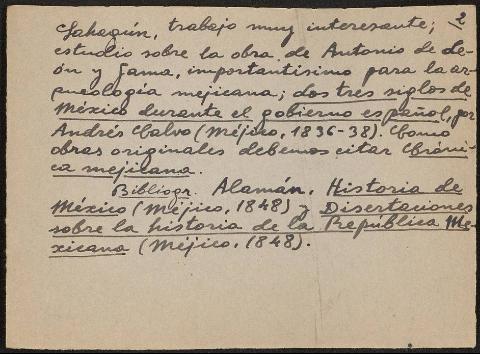 2
Sahagún, trabajo muy interesante;
estudio sobre la obra de Antonio de Le-
ón y Gama, importantísimo para la ar-
queología mejicana; dos tres siglos de
México durante el gobierno español, por
Andrés Calvo (Méjico, 1836-38). Como
obras originales debemos citar Cróni-
ca mejicana.
Bibliogr. Alamán, Historia de
México (Méjico, 1848) y Disertaciones
sobre la historia de la República Me-
xicana (Méjico, 1848).